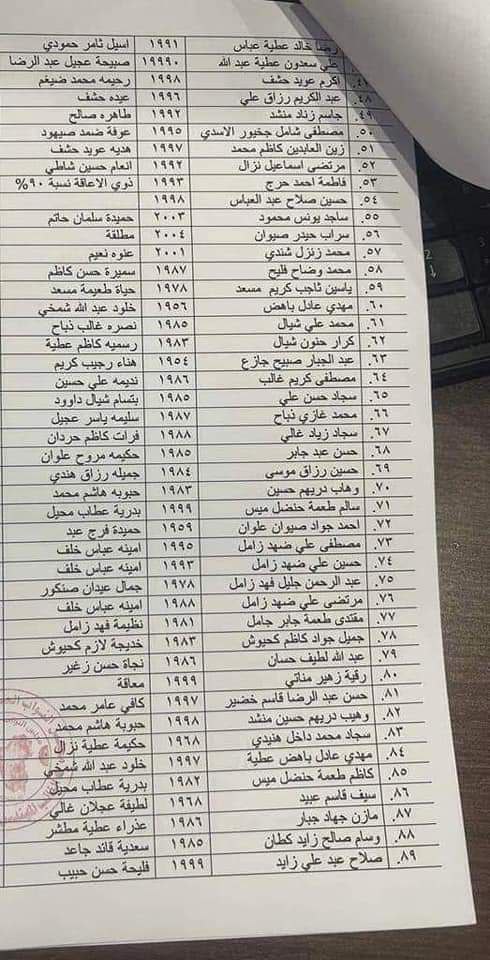 رضا خالد عطية عباس ١٩٩١ اسيل ثامر حمودي
علي سعدون عطية عبد الله ١٩٩٩٠ صبيحة عجيل عبد الرضا
اكرم عويد حشف ١٩٩٨ رحيمه محمد ضيغم
٤٨. عبد الكريم رزاق علي ١٩٩٦ عيده حشف
٤٩. جاسم زناد منشد ١٩٩٢ طاهره صالح
٥٠. مصطفى شامل جخيور الاسدي ١٩٩٥ عوفة ضمد صيهود
٥١. زين العابدين كاظم محمد ١٩٩٧ هديه عويد حشف
٥٢. مرتضى اسماعيل نزال ١٩٩٢ انعام حسين شاطي
٥٣. فاطمة احمد حرج ١٩٩٣ ذوي الاعاقة نسبة ٩٠%
٥٤. حسين صلاح عبد العباس ١٩٩٨
٥٥. ساجد يونس محمود ٢٠٠٣ حميدة سلمان حاتم
٥٦. سراب حيدر صيوان ٢٠٠٤ مطلقة
٥٧. محمد زنزل شندي ٢٠٠١ عنوه نعيم
٥٨. محمد وضاح فليح ١٩٨٧ سميرة حسن كاظم
٥٩. ياسين ثاجب كريم مسعد ١٩٧٨ حياة طعيمة مسعد
٦٠. مهدي عادل باهض ١٩٥٦ خلود عبد الله شمخي
٦١. محمد علي شيال ١٩٨٥ نصره غالب ذباح
٦٢. كرار حنون شيال ١٩٨٣ رسميه كاظم عطية
٦٣. عبد الجبار صبيح جازع ١٩٥٤ هناء رجيب كريم
٦٤. مصطفى كريم غالب ١٩٨٦ نديمه علي حسين
٦٥. سجاد حسن علي ١٩٨٥ بتسام شيال داوود
٦٦. محمد غازي ذباح ١٩٨٧ سليمه ياسر عجيل
٦٧. سجاد زياد غالي ١٩٨٨ فرات كاظم حردان
٦٨. حسن عبد جابر ١٩٨٥ حكيمه مروح علوان
٦٩. حسين رزاق موسى ١٩٨٤ جميله رزاق هندي
٧٠. وهاب دريهم حسين ١٩٨٣ حبوبه هاشم محمد
٧١. سالم طعمة حنضل ميس ١٩٩٩ بدرية عطاب محيل
٧٢. احمد جواد صيوان علوان ١٩٥٩ حميدة فرج عبد
٧٣. مصطفى علي ضهد زامل ١٩٩٥ امينه عباس خلف
٧٤. حسين علي ضهد زامل ١٩٩٣ امينه عباس خلف
٧٥. عبد الرحمن جليل فهد زامل ١٩٧٨ جمال عيدان صنكور
٧٦. مرتضى علي ضهد زامل ١٩٨٨ امينه عباس خلف
٧٧. مقتدى طعمة جابر جامل ١٩٨١ نظيمة فهد زامل
٧٨. جميل جواد كاظم كحيوش ١٩٨٣ خديجة لازم كحيوش
٧٩. عبد الله لطيف حسان ١٩٨٦ نجاة حسن زغير
٨٠. رقية زهير مناتي ١٩٩٩ معاقة
٨١. حسن عبد الرضا قاسم خضير ١٩٩٧ كافي عامر محمد
٨٢. وهيب دريهم حسين منشد ١٩٩٨ حبوبة هاشم محمد
٨٣. سجاد محمد داخل هنيدي ١٩٦٨ حكيمة عطية نزال
٨٤. مهدي عادل باهض عطية ١٩٩٧ خلود عبد الله شمخي
٨٥. كاظم طعمة حنضل ميس ١٩٨٢ بدرية عطاب محيل
٨٦. سيف قاسم عبيد ١٩٦٨ لطيفة عجلان غالي
٨٧. مازن جهاد جبار ١٩٨٦ عذراء عطية مطشر
٨٨. وسام صالح زايد كطان ١٩٨٥ سعدية قائد جاعد
٨٩. صلاح عبد علي زايد ١٩٩٩ فليحة حسن حبيب